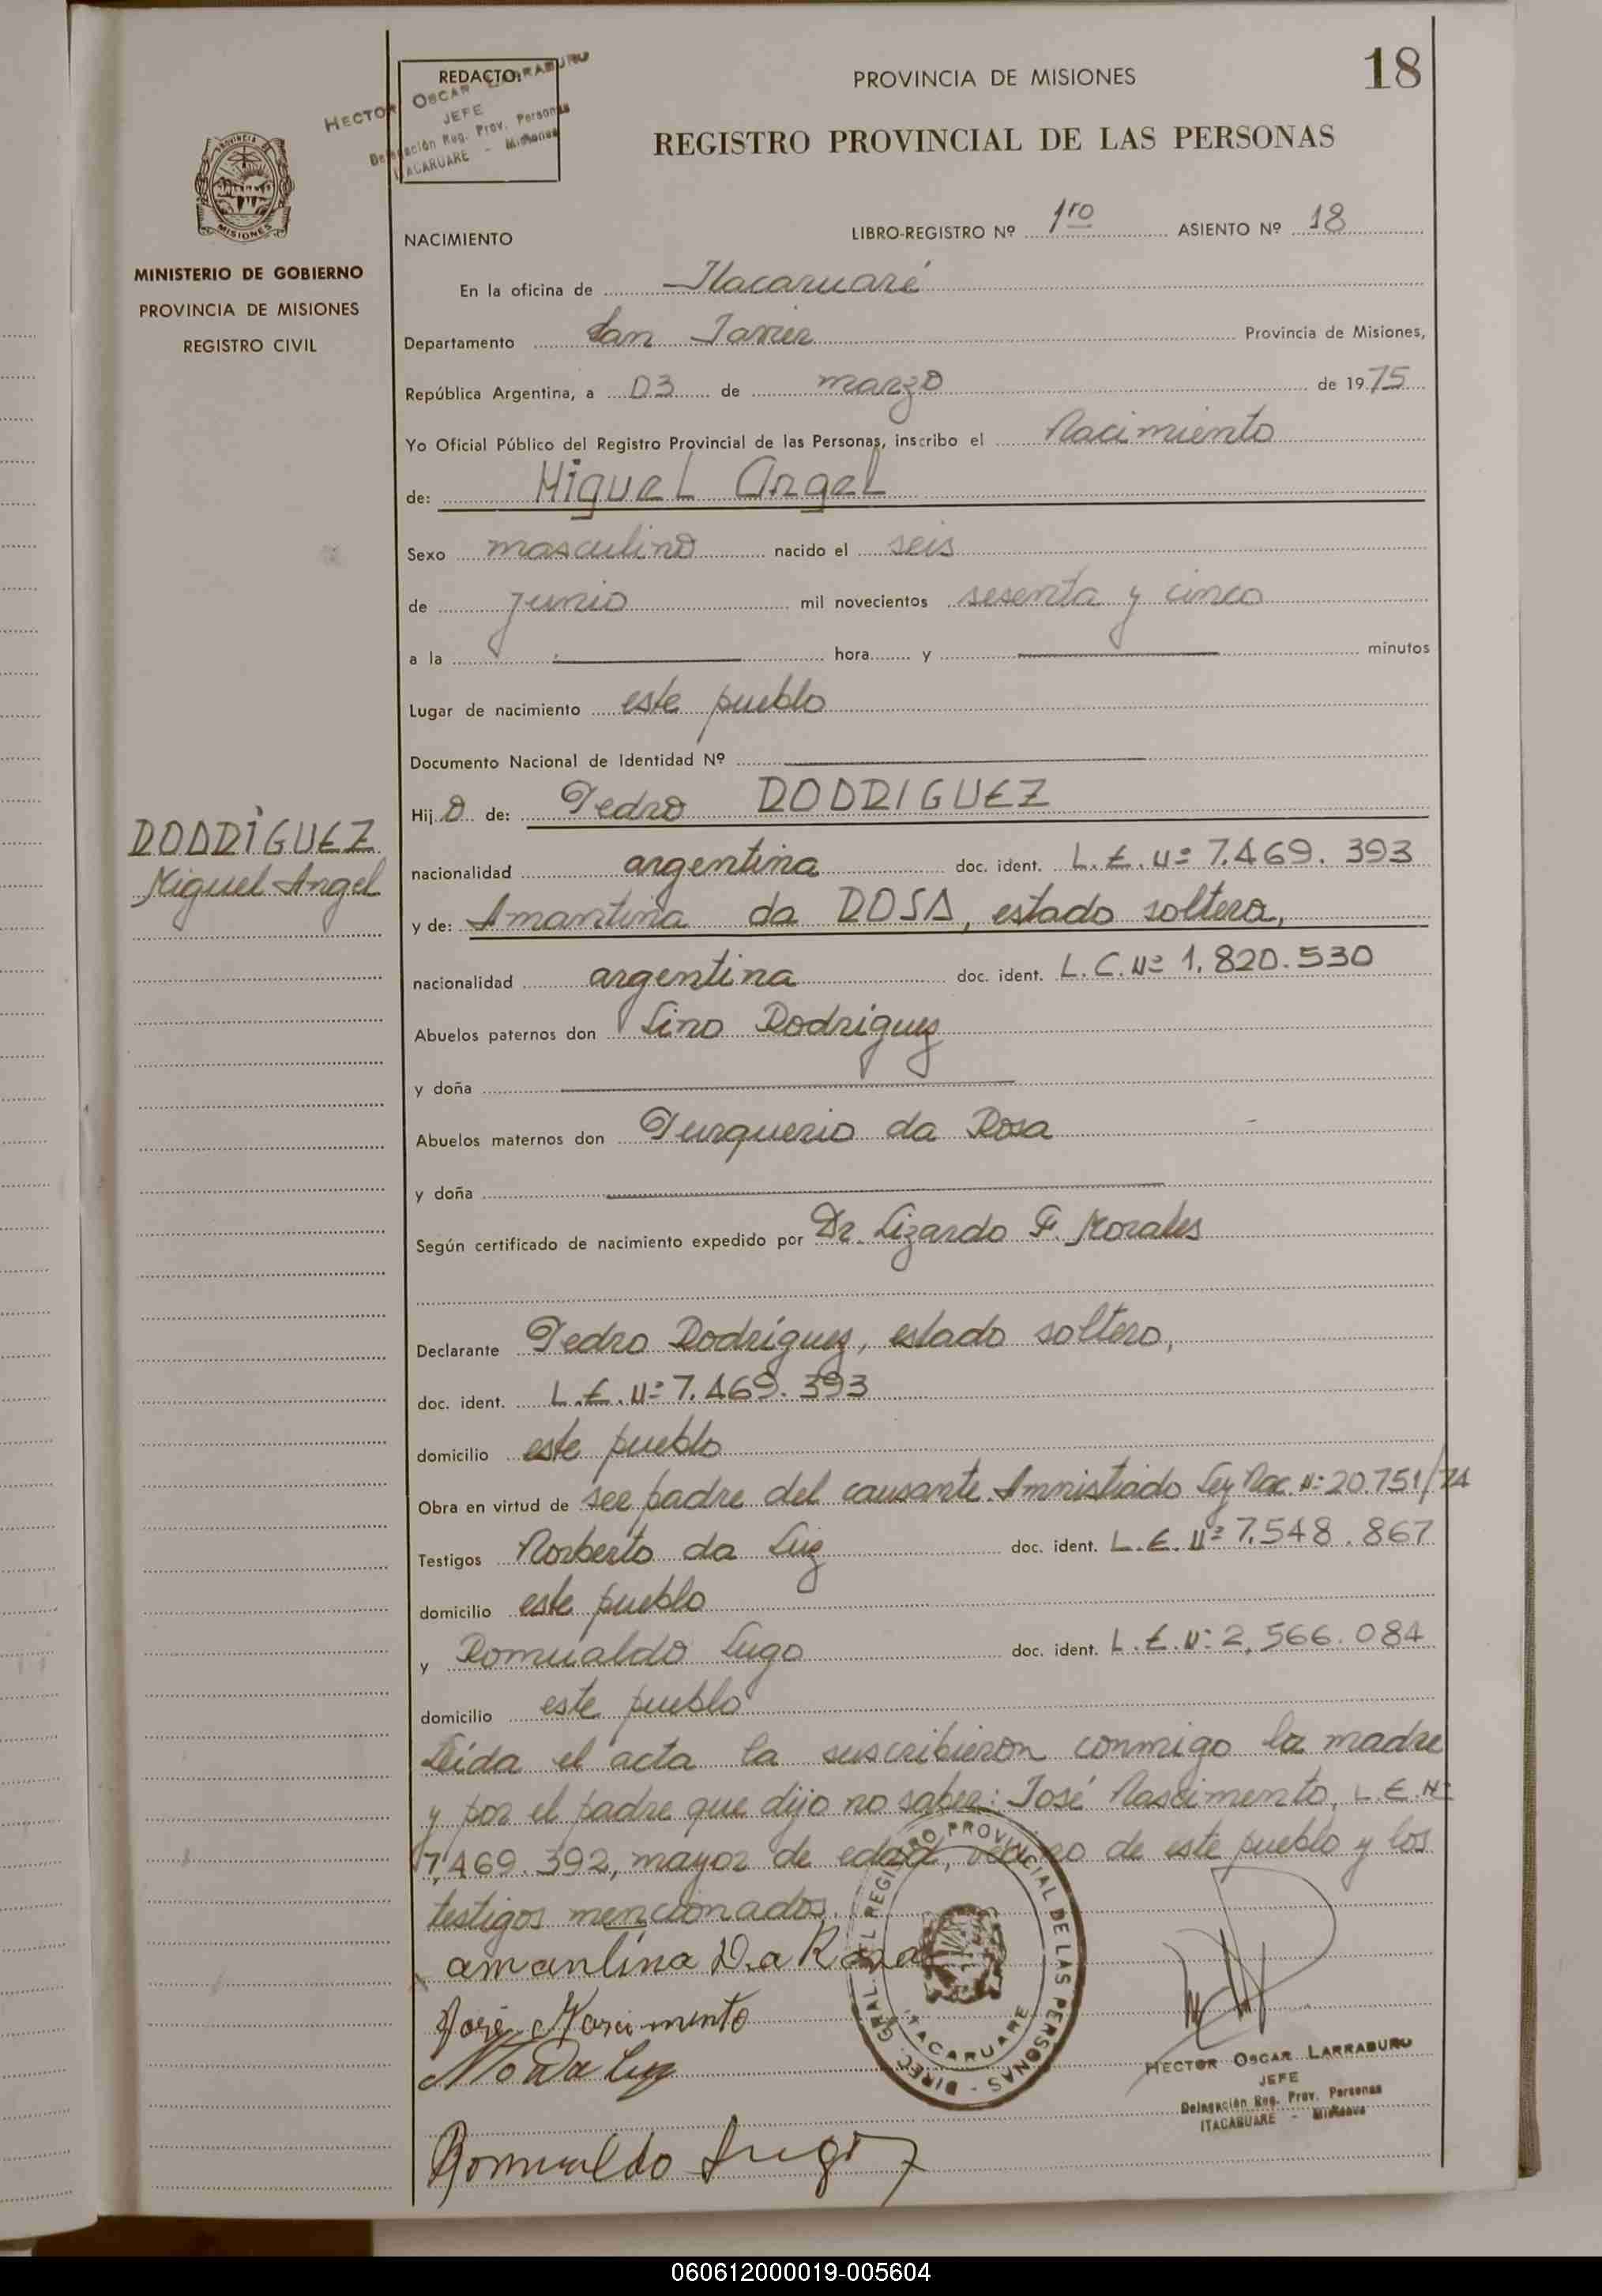 18
PROVINCIA DE MISIONES
REGISTRO PROVINCIAL DE LAS PERSONAS
REDACTO:
HECTOR OSCAR LARRABURU
JEFE
Delegación Reg. Prov. Personas
ITACARUARE - Misiones
PROVINCIA
MISIONES
MINISTERIO DE GOBIERNO
PROVINCIA DE MISIONES
REGISTRO CIVIL
NACIMIENTO LIBRO-REGISTRO Nº 1ro ASIENTO Nº 18
En la oficina de Itacaruaré
Departamento San Javier Provincia de Misiones,
República Argentina, a 03 de marzo de 1975
Yo Oficial Público del Registro Provincial de las Personas, inscribo el Nacimiento
de: Miguel Angel
Sexo masculino nacido el seis
de junio mil novecientos sesenta y cinco
a la hora y minutos
Lugar de nacimiento este pueblo
Documento Nacional de Identidad Nº
Hijo de: Pedro RODRIGUEZ
RODRIGUEZ
Miguel Angel
nacionalidad argentina doc. ident. L.E. Nº 7.469.393
y de: Amantina da ROSA, estado soltera,
nacionalidad argentina doc. ident. L.C. Nº 1.820.530
Abuelos paternos don Lino Rodriguez
y doña
Abuelos maternos don Purquerio da Rosa
y doña
Según certificado de nacimiento expedido por Dr. Lizardo F. Morales
Declarante Pedro Rodríguez, estado soltero,
doc. ident. L.E. Nº 7.469.393
domicilio este pueblo
Obra en virtud de ser padre del causante. Amnistiado Ley Nac. Nº 20.751/74
Testigos Norberto da Luz doc. ident. L.E. Nº 7.548.867
domicilio este pueblo
y Romualdo Lugo doc. ident. L.E. Nº 2.566.084
domicilio este pueblo
Leída el acta la suscribieron conmigo la madre
y por el padre que dijo no saber: José Nascimento, L.E. Nº
7.469.392, mayor de edad, vecino de este pueblo y los
testigos mencionados.
amantina Da Rosa
José Nascimento
No Da Luz
Romualdo Lugo
DIREC. GRAL. DEL REGISTRO PROVINCIAL DE LAS PERSONAS -
ITACARUARE
HECTOR OSCAR LARRABURU
JEFE
Delegación Reg. Prov. Personas
ITACARUARE - Misiones
060612000019-005604